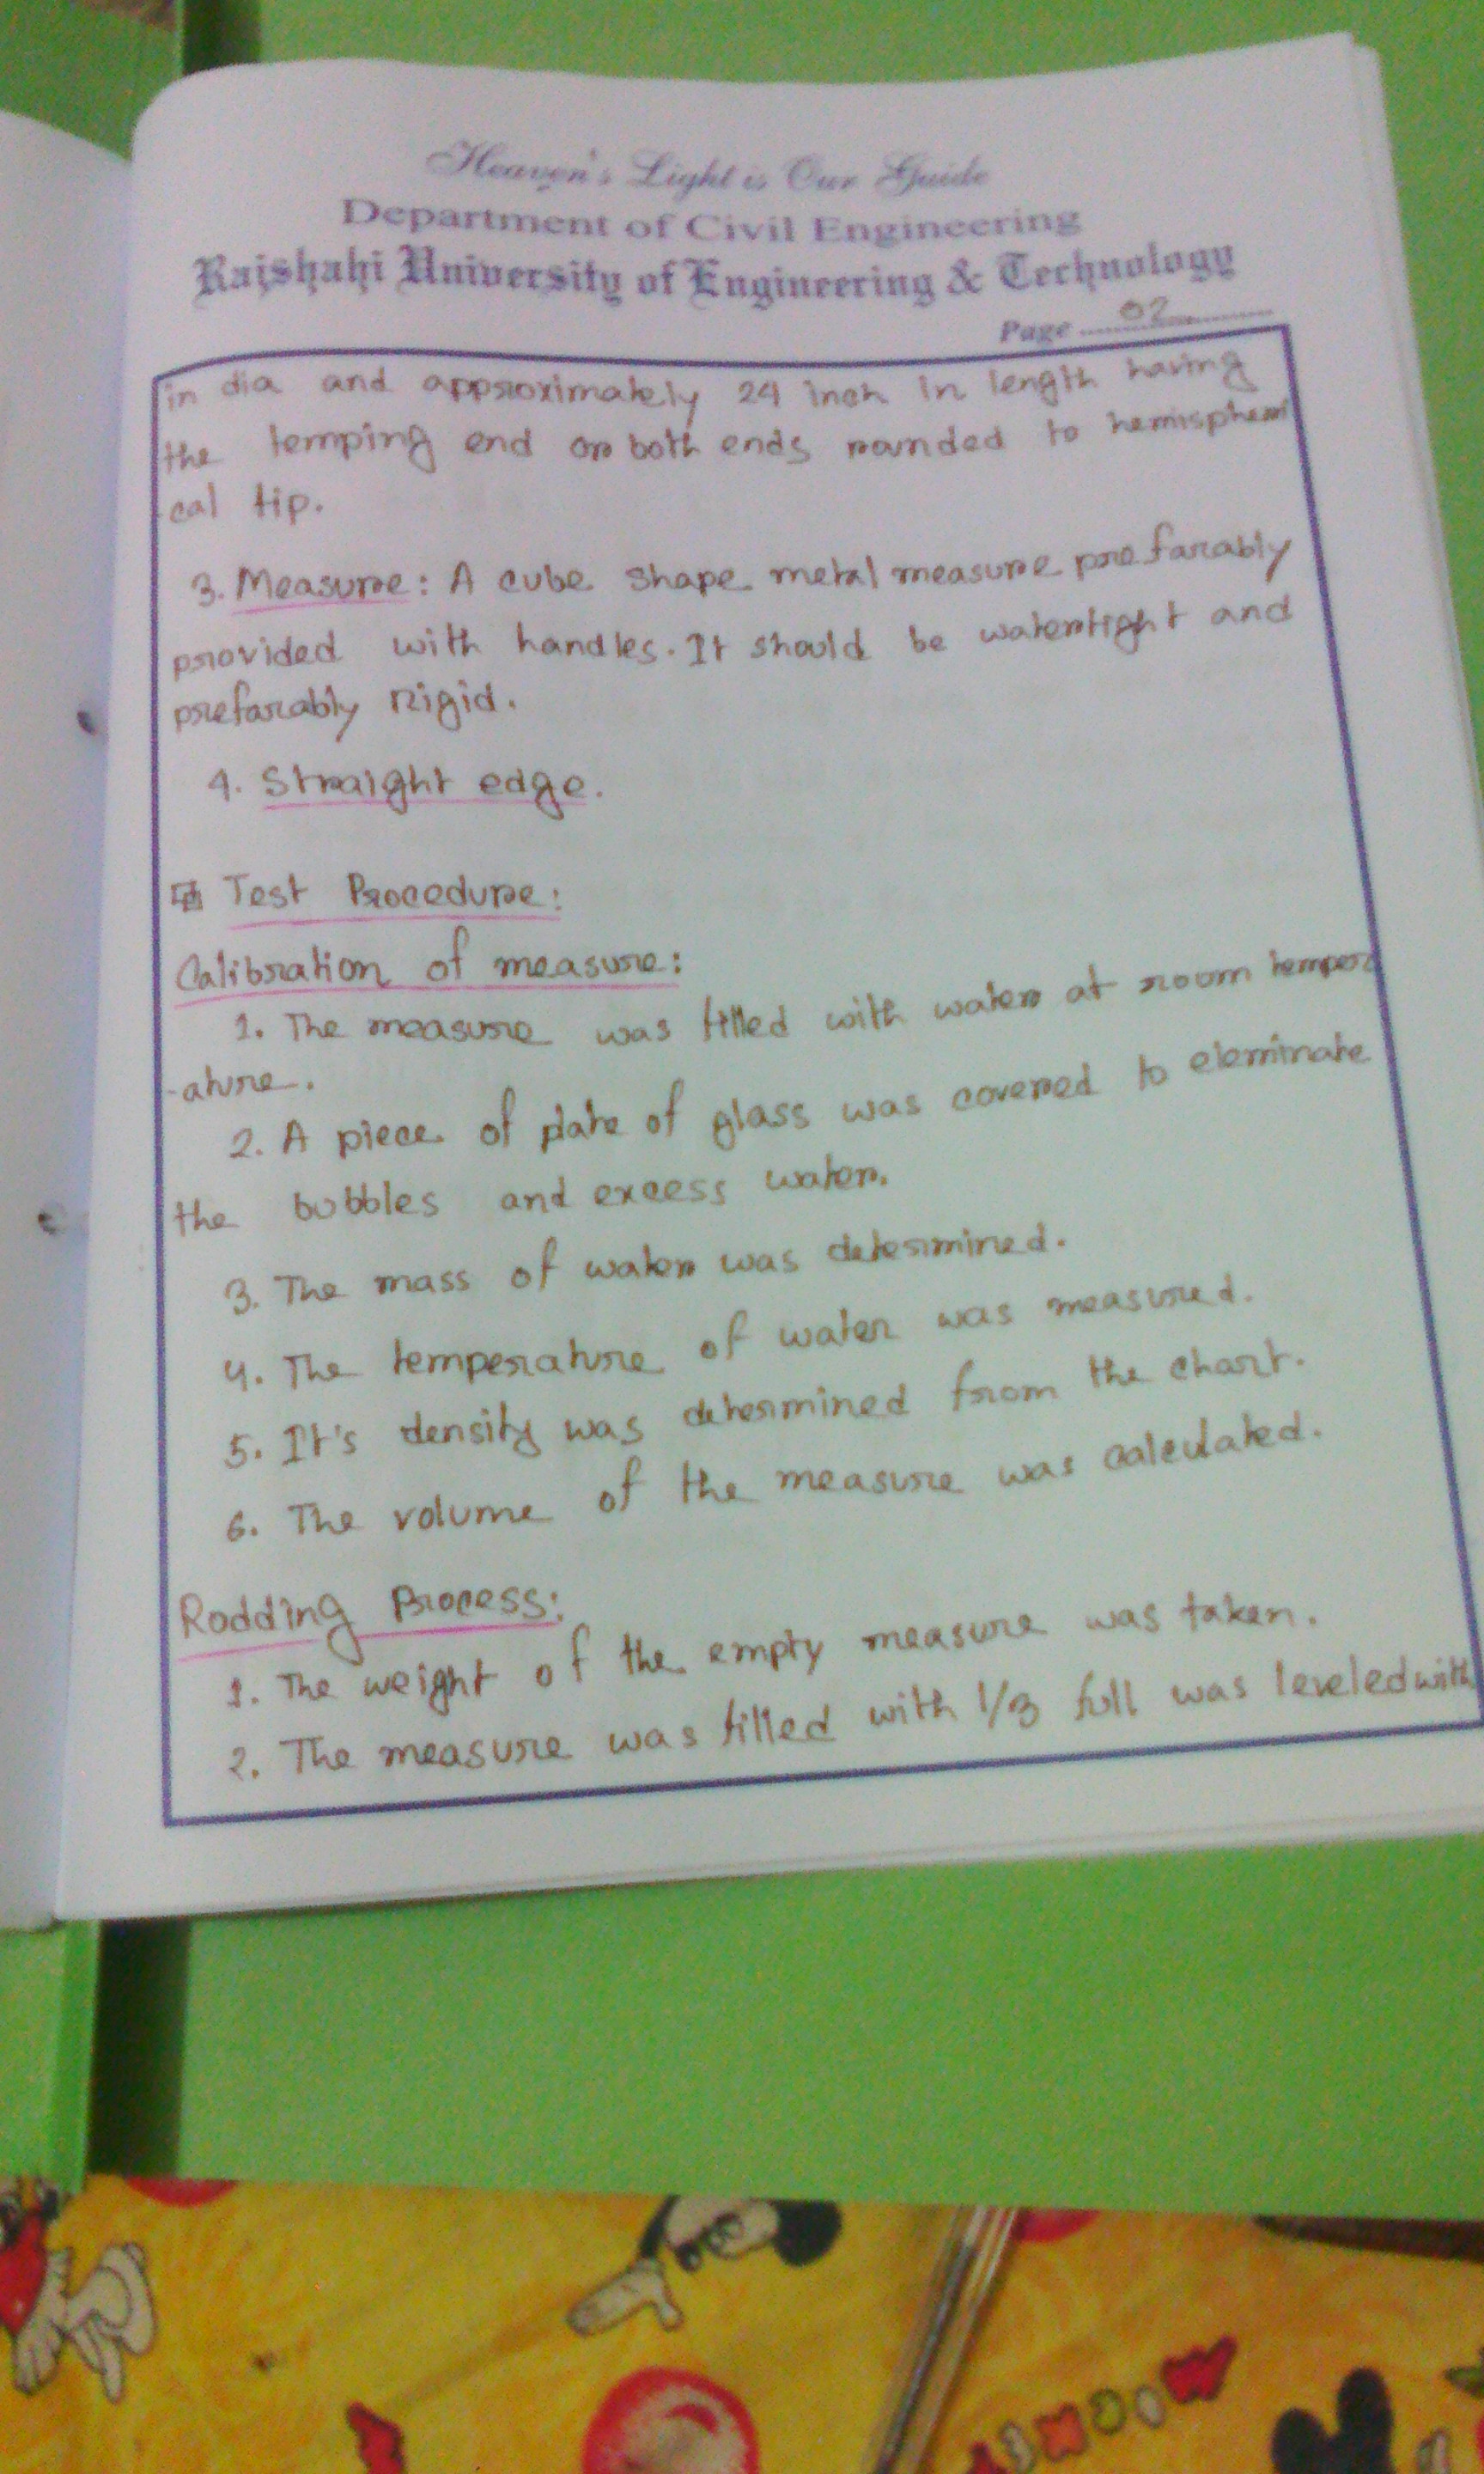 Heaven's Light is Our Guide
Department of Civil Engineering
Rajshahi University of Engineering & Technology
Page 02
in dia and approximately 24 inch in length having
the temping end or both ends rounded to hemispheri
-cal tip.
3. Measure: A cube shape metal measure prefarably
provided with handles. It should be watertight and
prefarably rigid.
4. Straight edge.
Test Procedure:
Calibration of measure:
1. The measure was filled with water at room temper
-ature.
2. A piece of plate of glass was covered to eleminate
the bubbles and excess water.
3. The mass of water was determined.
4. The temperature of water was measured.
5. It's density was determined from the chart.
6. The volume of the measure was calculated.
Rodding Process:
1. The weight of the empty measure was taken.
2. The measure was filled with 1/3 full was leveled with